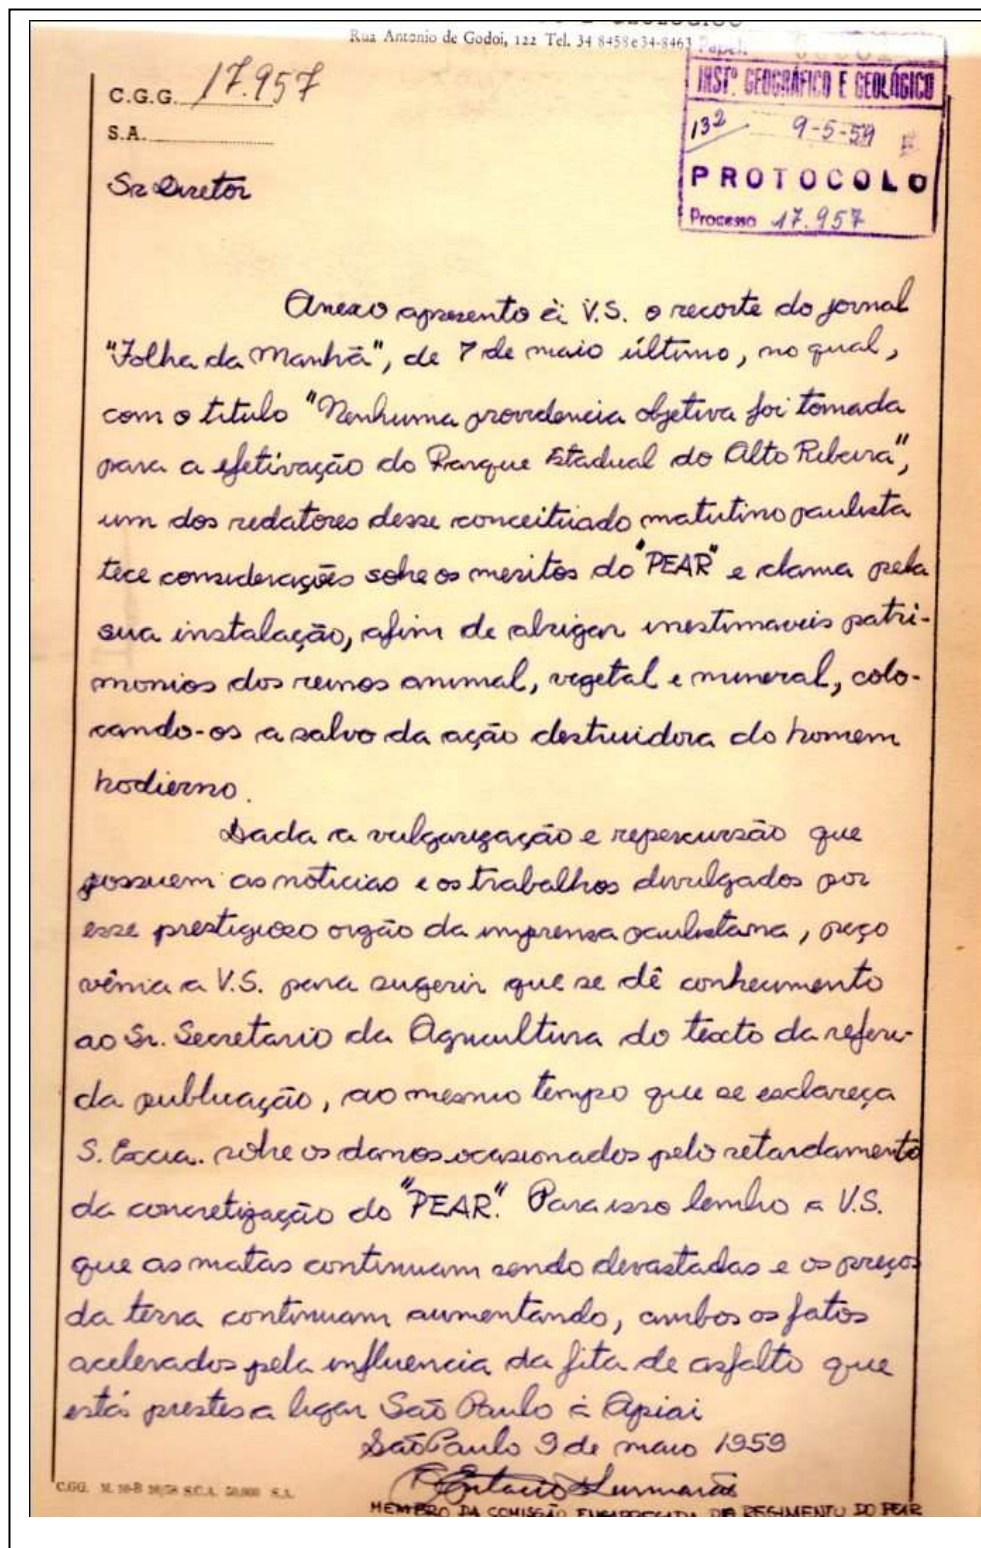 Rua Antonio de Godoi, 122 Tel. 34 8458 e 34-8463
C.G.G. 17.957
S.A.
INSTº GEOGRÁFICO E GEOLÓGICO
132 9-5-59
PROTOCOLO
Processo 17.957
Sr Diretor
Anexo apresento à V.S. o recorte do jornal
"Folha da Manhã", de 7 de maio último, no qual,
com o titulo "Nenhuma providencia objetiva foi tomada
para a efetivação do Parque Estadual do Alto Ribeira",
um dos redatores desse conceituado matutino paulista
tece considerações sobre os meritos do "PEAR" e clama pela
sua instalação, afim de abrigar inestimaveis patri-
monios dos reinos animal, vegetal e mineral, colo-
cando-os a salvo da ação destruidora do homem
hodierno.
Dada a vulgarização e repercursão que
possuem as noticias e os trabalhos divulgados por
esse prestigioso orgão da imprensa paulistana, peço
vênia a V.S. para sugerir que se dê conhecimento
ao Sr. Secretario da Agricultura do texto da referi-
da publicação, ao mesmo tempo que se esclareça
S. Excia. sobre os danos ocasionados pelo retardamento
da concretização do "PEAR". Para isso lembro a V.S.
que as matas continuam sendo devastadas e os preços
da terra continuam aumentando, ambos os fatos
acelerados pela influencia da fita de asfalto que
está prestes a ligar São Paulo à Apiai
São Paulo 9 de maio 1959
MEMBRO DA COMISSÃO ENCARREGADA DO REGIMENTO DO PEAR
C.GG. M. 10-B 10/58 S.C.A. 50.000 S.A.